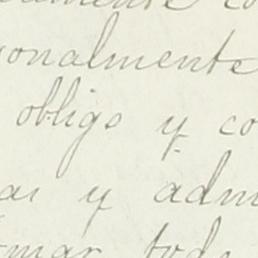 onalmente
obligo y co
as y adm
mar tod